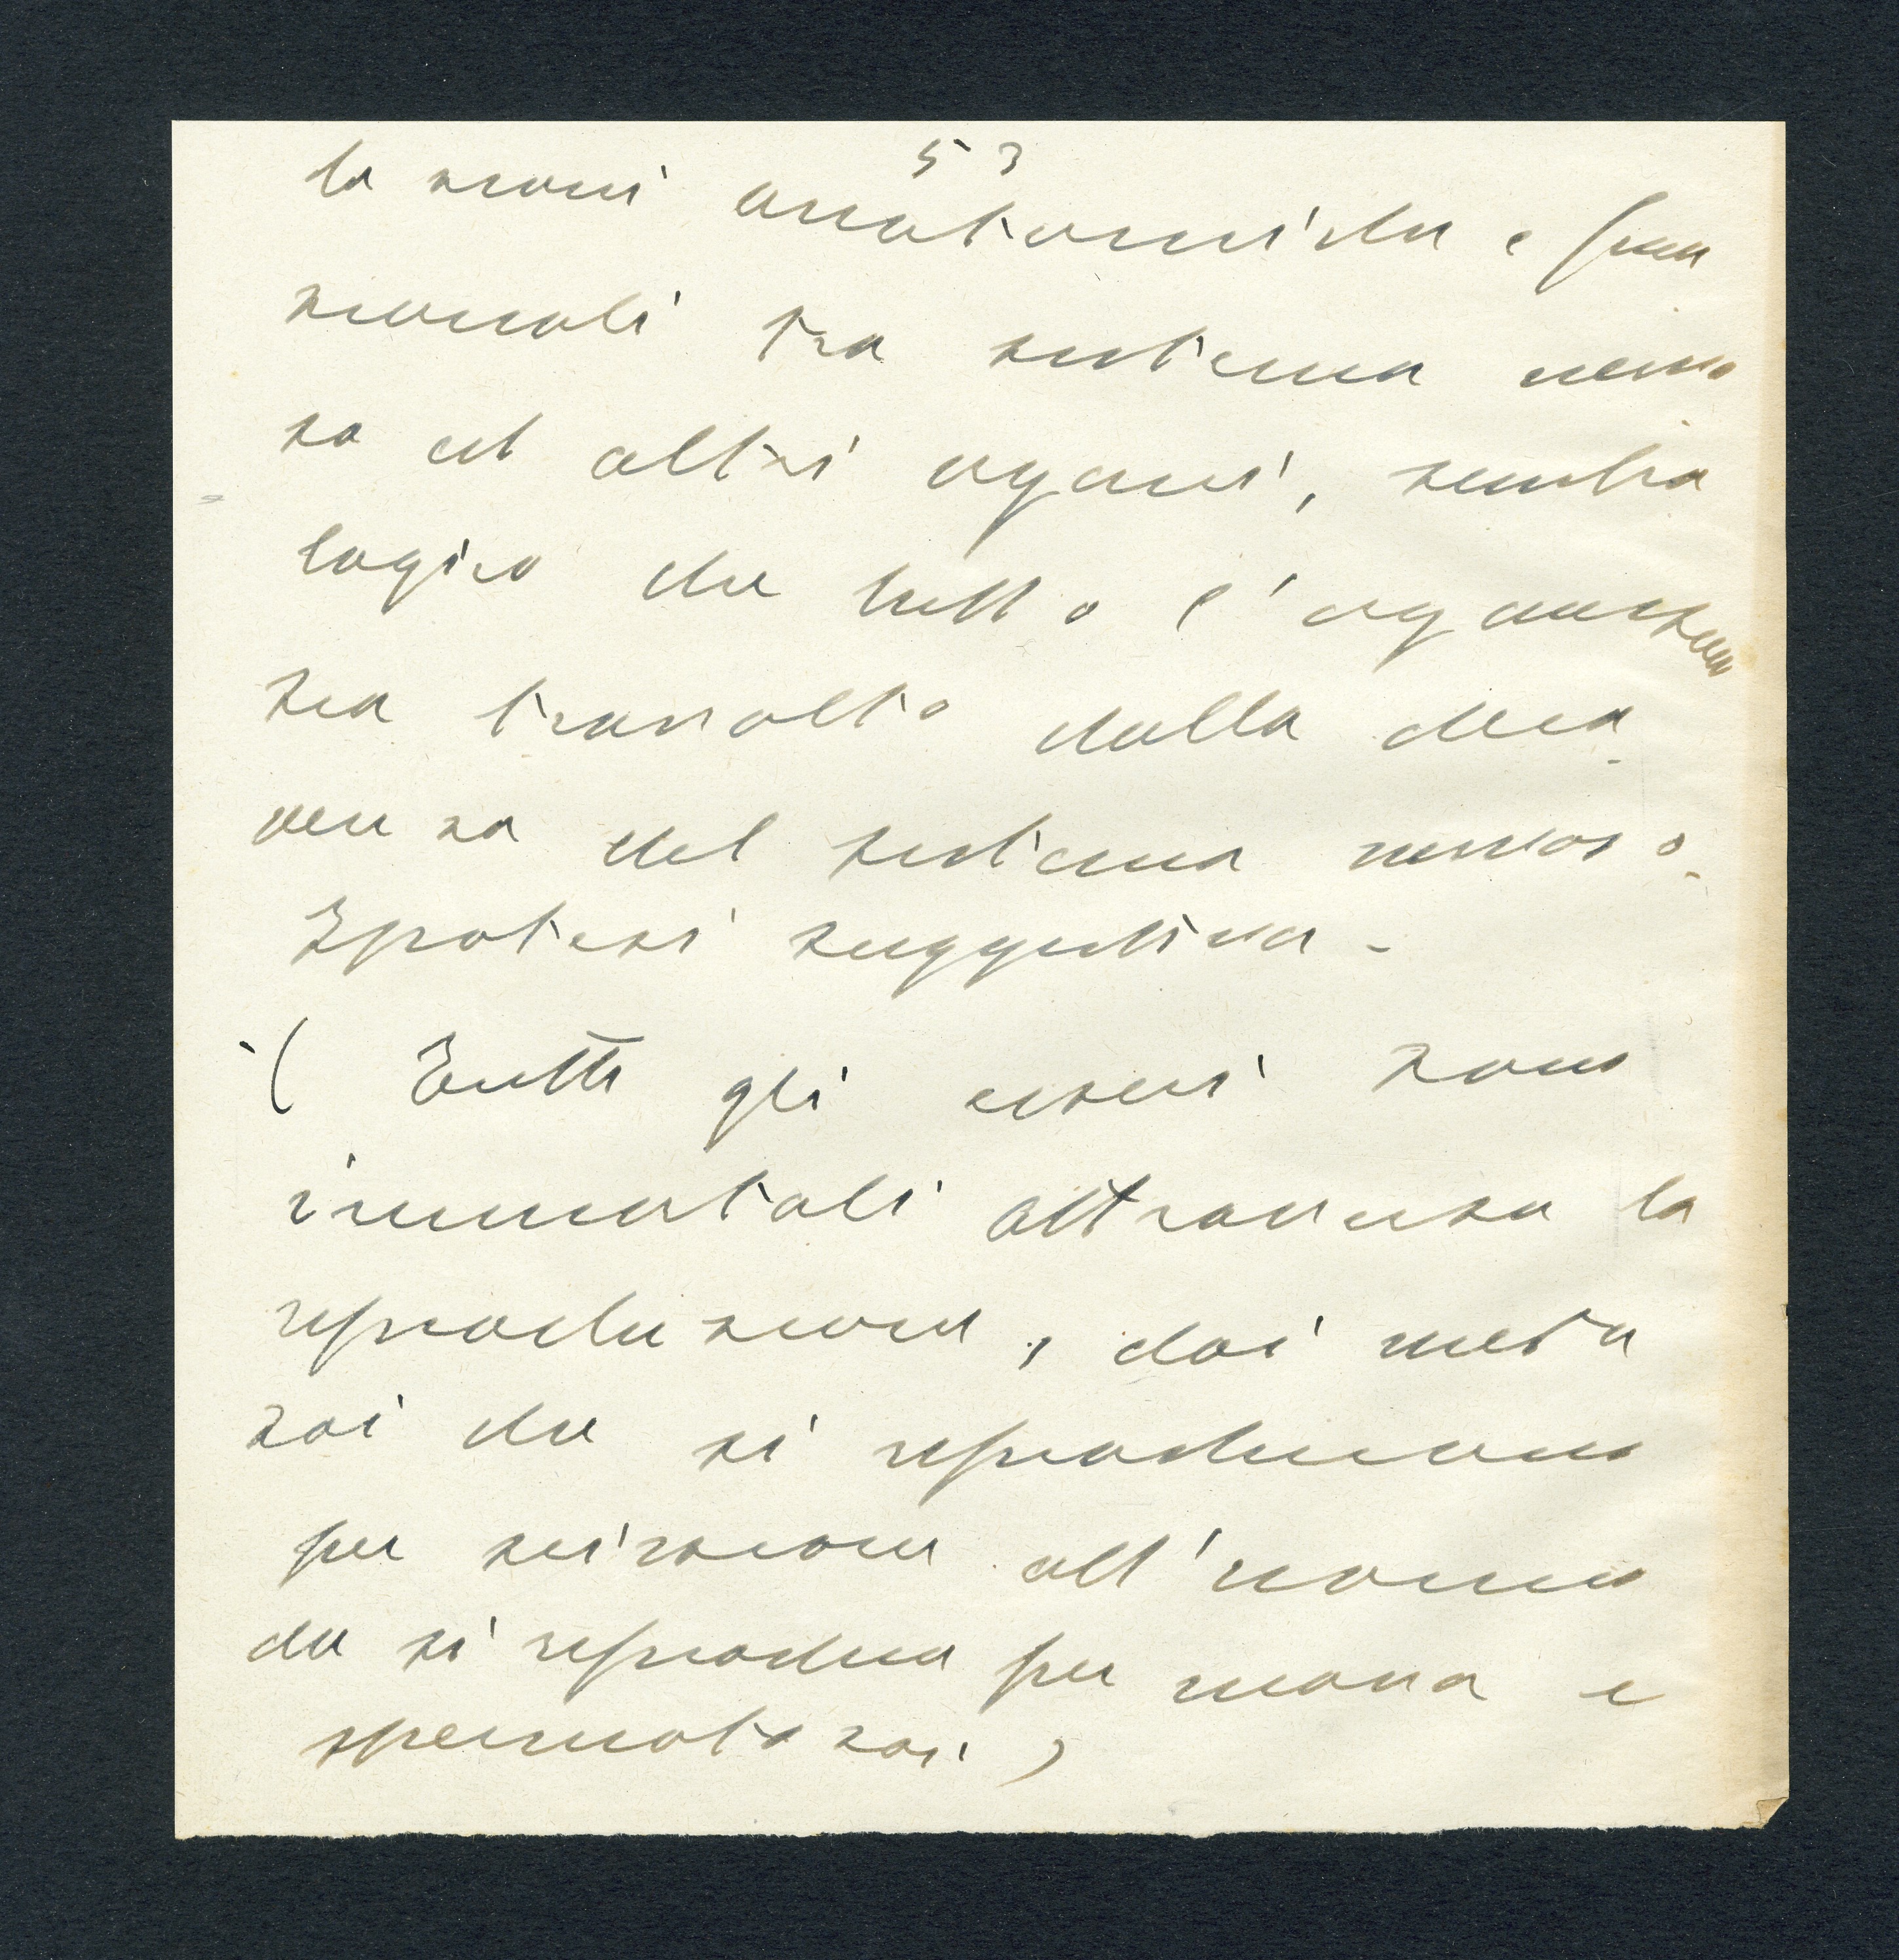 53
lazioni anatomiche e fun
zionali tra sistema nervo
so ed altri organi, sembra
logico che tutto l'organismo
sia travolto dalla deca
denza del sistema nervoso.
Ipotesi suggestiva -
( Tutti gli esseri sono
immortali attraverso la
riproduzione, dai meta
zoi che si riproducono
per scissione all'uomo
che si riproduce per uova e
spermatozoi )